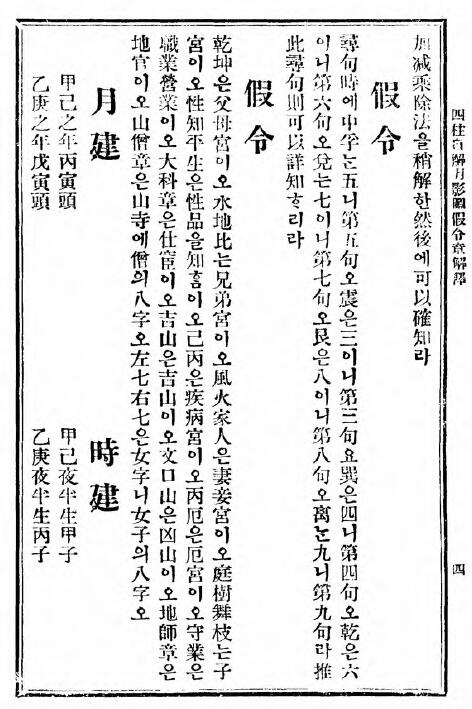 四柱百解月影圖假令章解譯
四
加減乘除法을稍解한然後에可以確知라
假令
尋句時에中孚는五니第五句오震은三이니第三句요巽은四니第四句오乾은六
이니第六句오兌는七이니第七句오艮은八이니第八句오离는九니第九句라推
此尋句則可以詳知ᄒᆞ리라
假令
乾坤은父母宮이오水地比는兄弟宮이오風火家人은妻妾宮이오庭樹舞枝는子
宮이오性知平生은性品을知홈이오己丙은疾病宮이오丙厄은厄宮이오守業은
職業營業이오大科章은仕宦이오吉山은吉山이오文口山은凶山이오地師章은
地官이오山僧章은山寺에僧의八字오左七右七은女字니女子의八字오
月建
甲己之年丙寅頭
乙庚之年戊寅頭
時建
甲己夜半生甲子
乙庚夜半生丙子